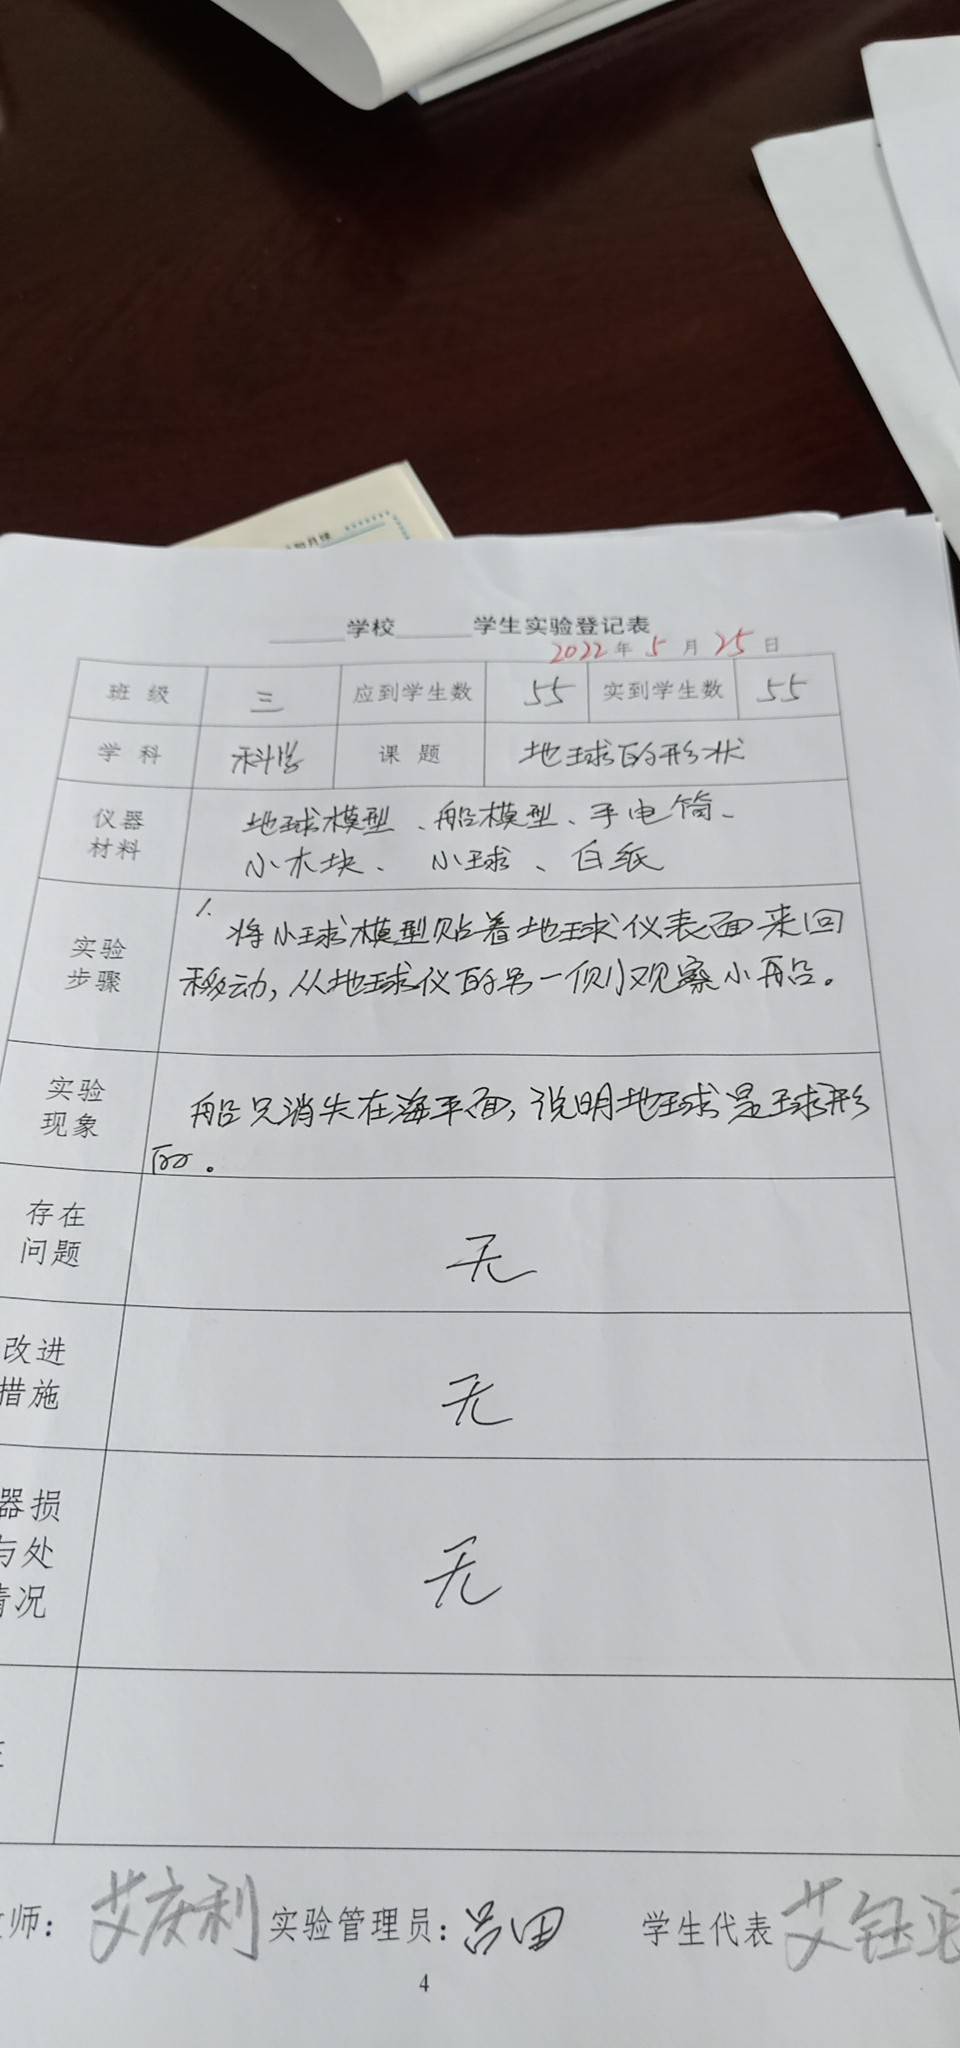 ______学校______学生实验登记表
2022年5月25日
班级 三 应到学生数 55 实到学生数 55
学科 科学 课题 地球的形状
仪器
材料
地球模型、船模型、手电筒、
小木块、小球、白纸
实验
步骤
1.将小球模型贴着地球仪表面来回
移动,从地球仪的另一侧观察小船。
实验
现象
船只消失在海平面,说明地球是球形
的。
存在
问题
无
改进
措施
无
器损
与处
情况
无
师: 艾庆利 实验管理员: 吕田 学生代表 艾钰
4